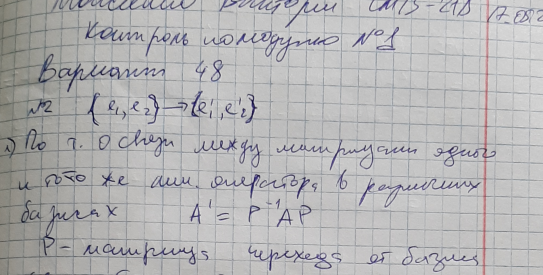 Виктория СМ13-21Б
Контроль по модулю №1
Вариант 48
№2 {e₁, e₂} → {e'₁, e'₂}
1) По т. о связи между матрицами одного
и того же лин. оператора в различных
базисах A' = P⁻¹AP
P - матрица перехода от базиса